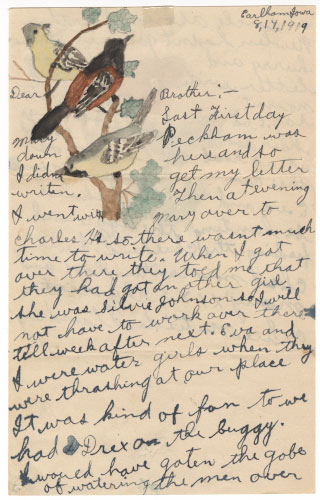 Earlham Iowa
8, 17, 1919
Dear Brother:-
Last First day
Mary Peckham was
down here and so
I didnt get my letter
writen. Then at evening
I went with Mary over to
Charles Hs so there wasnt much
time to write. When I got
over there they told me that
they had got another girl
she was Silvie Johnson so I will
not have to work over there
till week after next. Eva and
I were water girls when they
were thrashing at our place
It was kind of fon to we
had Drex on the buggy.
I wound have goten the gobe
of watering the men over